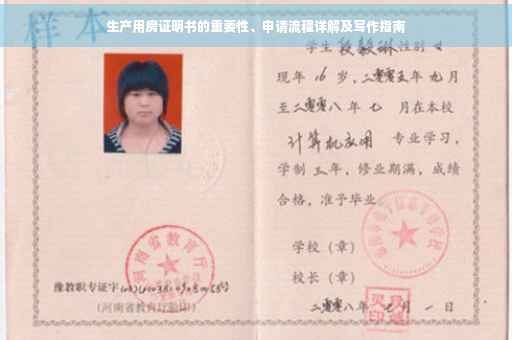 生产用房证明书的重要性、申请流程详解及写作指南
样本
学生段毅琳性别女
现年16岁,二零零五年九月
至二零零八年七月在本校
计算机应用 专业学习,
学制三年,修业期满,成绩
合格,准予毕业。
学校(章)
校长(章)
二零零八年七月一日
河南省教育厅
豫教职专证字
(河南省教育厅验印)